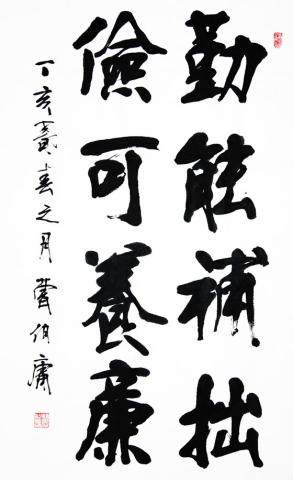 勤能補拙
儉可養廉
丁亥賁春之月 費伯庸